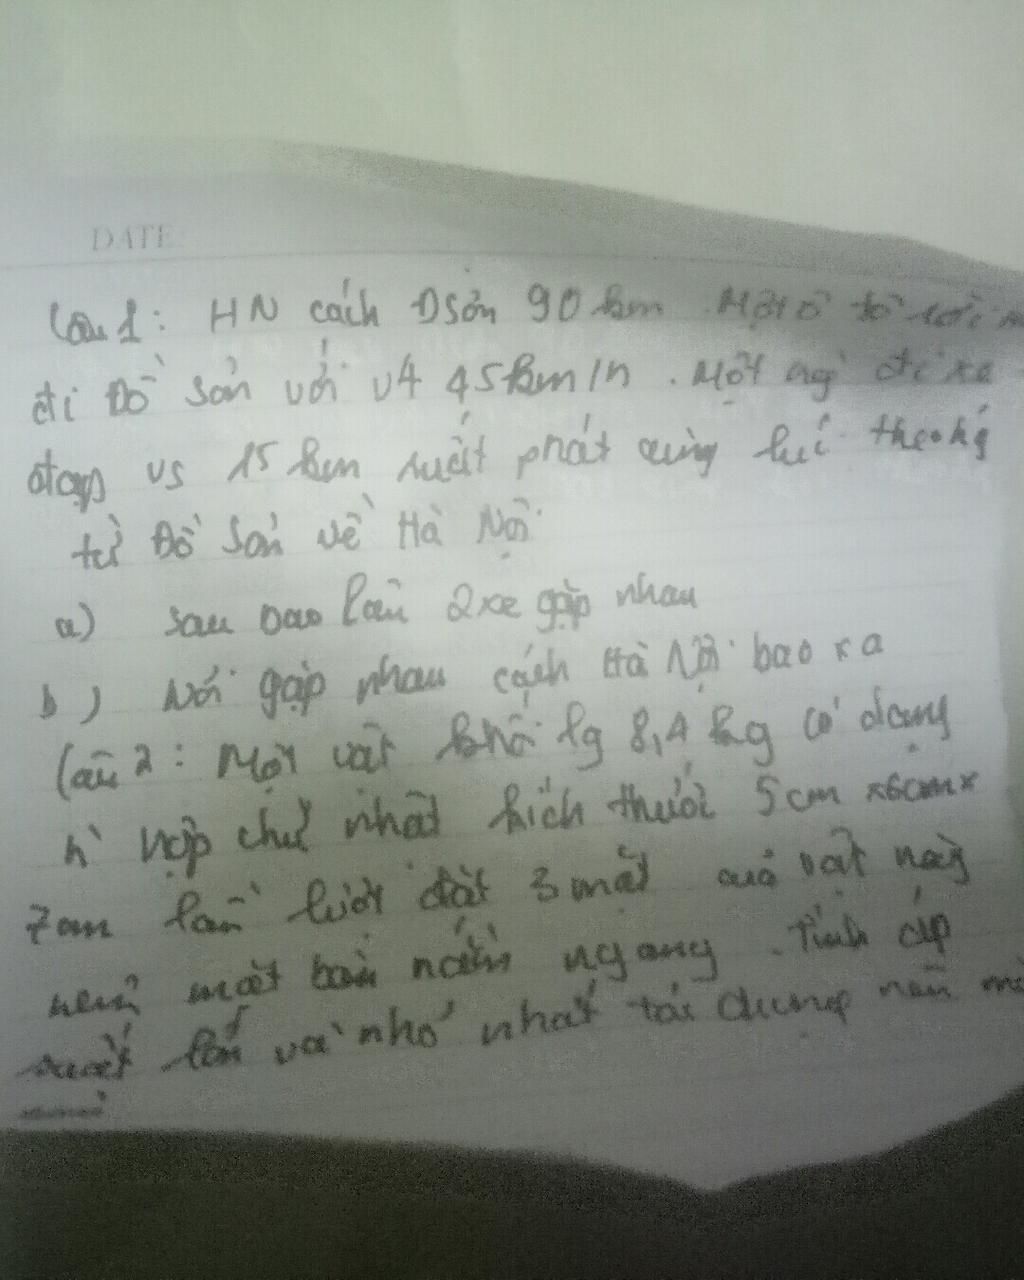 DATE:
Câu 1: HN cách Đ Sơn 90 km. Một ô tô rời
đi Đồ Sơn với v4 45km/h. Một ng đi xe
đạp vs 15 km xuất phát cùng lúc theo hg
từ Đồ Sơn về Hà Nội
a) sau bao lâu 2 xe gặp nhau
b) Nơi gặp nhau cách Hà Nội bao xa
Câu 2: Một vật khối lg 8,4 kg có dạng
h hộp chữ nhật kích thước 5cm x6cmx
7cm lần lượt đặt 3 mặt của vật này
mặt bàn nằm ngang. Tính áp
suất lớn và nhỏ nhất tác dụng